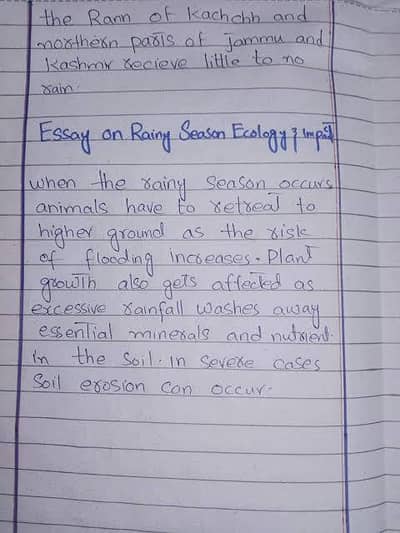 the Rann of Kachchh and
northern parts of jammu and
Kashmir recieve little to no
rain.
Essay on Rainy Season Ecology & Impact
when the rainy season occurs
animals have to retreat to
higher ground as the risk
of flooding increases. Plant
growth also gets affected as
excessive rainfall washes away
essential minerals and nutrient
in the soil. in severe cases
Soil erosion can occur.